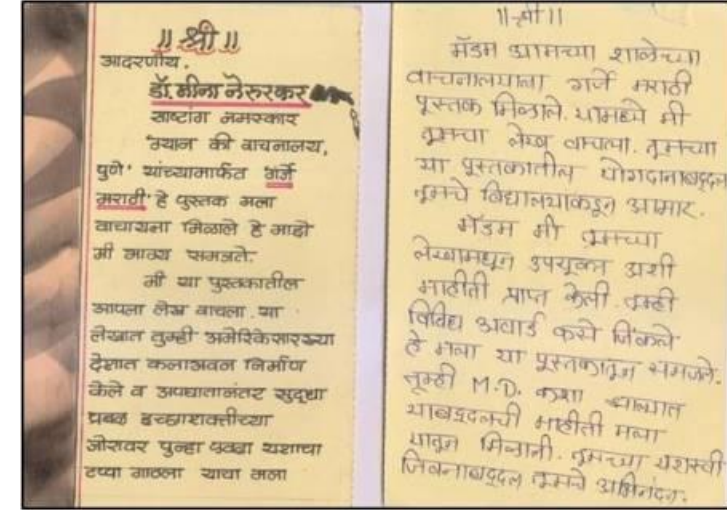 ॥ श्री ॥
आदरणीय,
डॉ. मीना नेरुरकर
साष्टांग नमस्कार
'ग्यान की वाचनालय,
पुणे' यांच्यामार्फत गर्जे
मराठी हे पुस्तक मला
वाचायला मिळाले हे माझे
मी भाग्य समजते.
मी या पुस्तकातील
आपला लेख वाचला. या
लेखात तुम्ही अमेरिकेसारख्या
देशात कलाभवन निर्माण
केले व अपघातानंतर सुद्धा
प्रबळ इच्छाशक्तीच्या
जोरावर पुन्हा एवढा यशाचा
टप्पा गाठला याचा मला
॥श्री॥
मॅडम आमच्या शाळेच्या
वाचनालयाला गर्जे मराठी
पूस्तक मिळाले. यामध्ये मी
तूमचा लेख वाचला. तूमच्या
या पूस्तकातील योगदानाबद्दल
तूमचे विद्यालयाकडून आभार.
मॅडम मी तूमच्या
लेखामधून उपयूक्त अशी
माहीती प्राप्त केली. तूम्ही
विविध अवार्ड कसे जिंकले
हे मला या पूस्तकातून समजले.
तूम्ही M.D. कशा झाल्यात
याबद्दलची माहीती मला
यातून मिळाली. तूमच्या यशस्वी
जिवनाबद्दल तूमचे अभिनंदन.